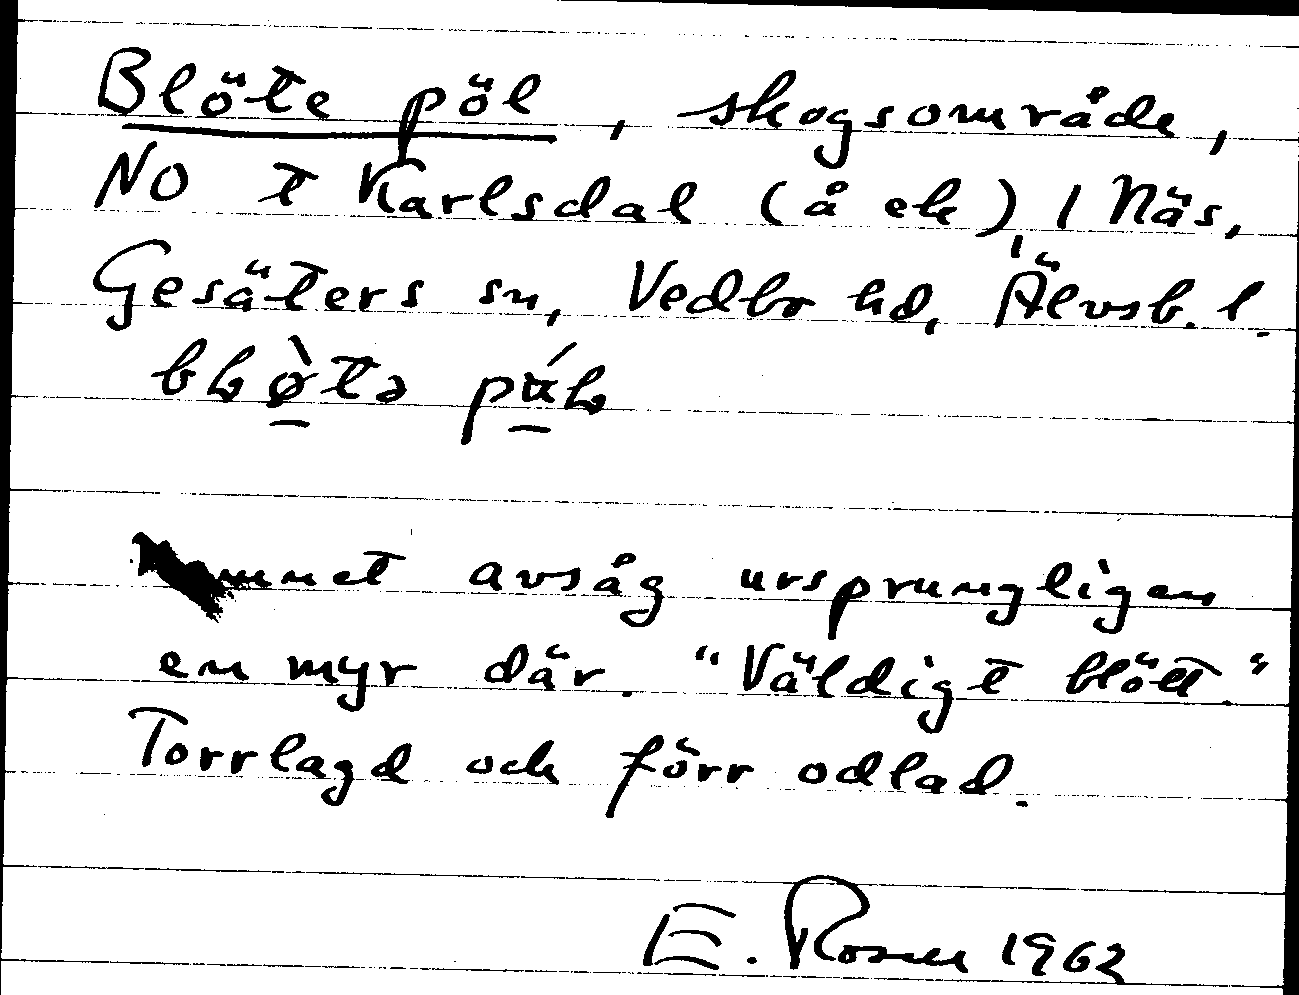 Blöte pöl, skogsområde,
NO t Karlsdal (å ek), 1 Näs,
Gesäters sn, Vedbo hd, Älvsb. l.
namnet avsåg ursprungligen
en myr där. "Väldigt blött."
Torrlagd och förr odlad.
E. Rosell 1962